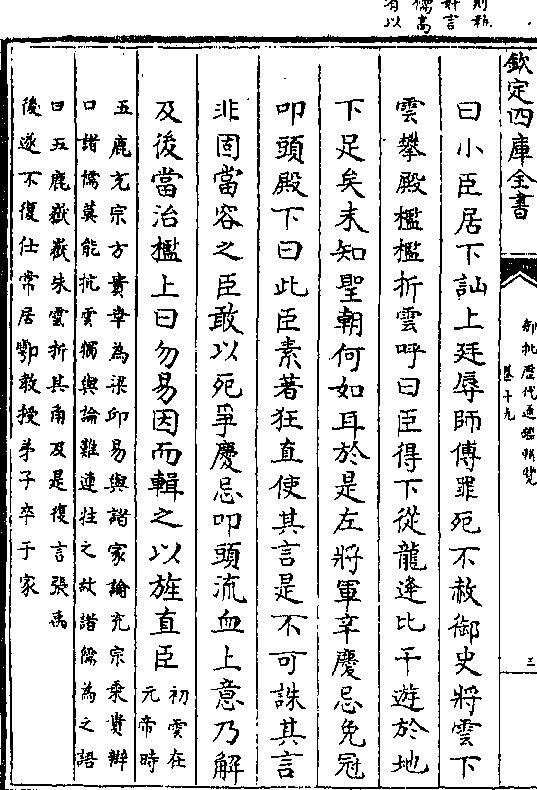 則執
奸言
儒高
有以
欽定四庫全書
御批歷代通鑑輯覽
卷十九
三
曰小臣居下訕上廷辱師傅罪死不赦御史將雲下
雲攀殿檻檻折雲呼曰臣得下從龍逄比干遊於地
下足矣未知聖朝何如耳於是左將軍辛慶忌免冠
叩頭殿下曰此臣素著狂直使其言是不可誅其言
非固當容之臣敢以死爭慶忌叩頭流血上意乃解
及後當治檻上曰勿易因而輯之以旌直臣
初雲在
元帝時
五鹿充宗方貴幸為梁邱易與諸家論充宗乘貴辯
口諸儒莫能抗雲獨與論難連拄之故諸儒為之語
曰五鹿嶽嶽朱雲折其角及是復言張禹
後遂不復仕常居鄠教授弟子卒于家